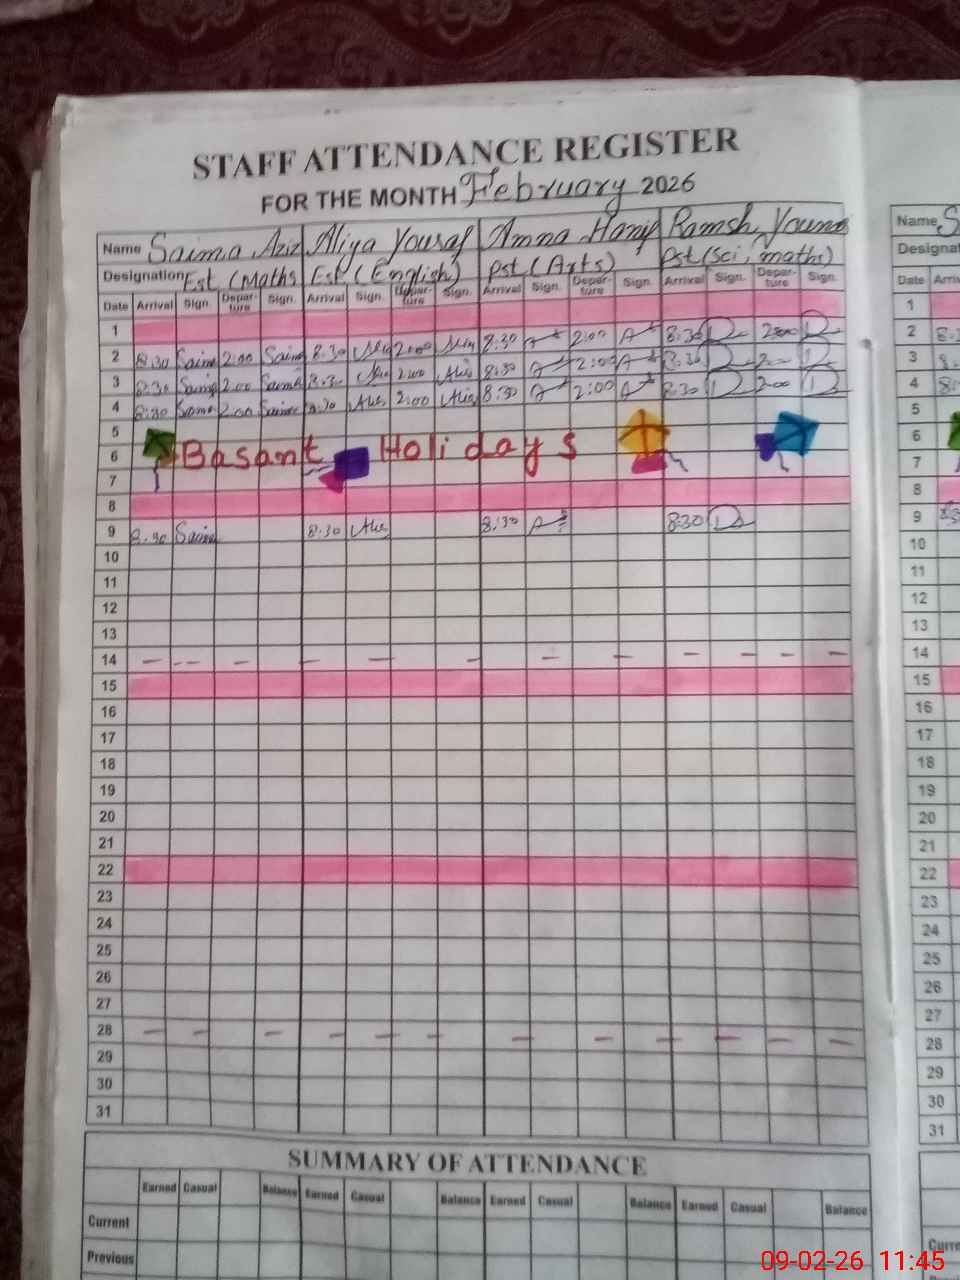 STAFF ATTENDANCE REGISTER
FOR THE MONTH February 2026
Name Saima Aziz Aliya Yousaf Amna Hanif Ramsh Youn Name S
Designation Est (Maths Est (English) Pst (Arts) Pst (Sci, maths) Designat
Date Arrival Sign. Depar-ture Sign. Arrival Sign. Depar-ture Sign. Arrival Sign. Depar-ture Sign. Arrival Sign. Depar-ture Sign. Date Arriv
1 1
2 8:30 Saim 2:00 Saim 8:30 2:00 8:30 2:00 8:30 2:00 2
3 8:30 Saima 2:00 Saima 8:30 2:00 Alia 8:30 2:00 8:30 2:00 3
4 8:30 Saima 2:00 Saima 8:30 Alia 2:00 Alia 8:30 2:00 8:30 2:00 4
5 5
6 Basant Holidays 6
7 7
8 8
9 8:30 Saim 8:30 Alia 8:30 8:30 9
10 10
11 11
12 12
13 13
14 – – – – – – – – – – – – 14
15 15
16 16
17 17
18 18
19 19
20 20
21 21
22 22
23 23
24 24
25 25
26 26
27 27
28 – – – – – – – – – – – – 28
29 29
30 30
31 31
SUMMARY OF ATTENDANCE
Earned Casual Balance Earned Casual Balance Earned Casual Balance Earned Casual Balance
Current Curre
Previous
09-02-26 11:45